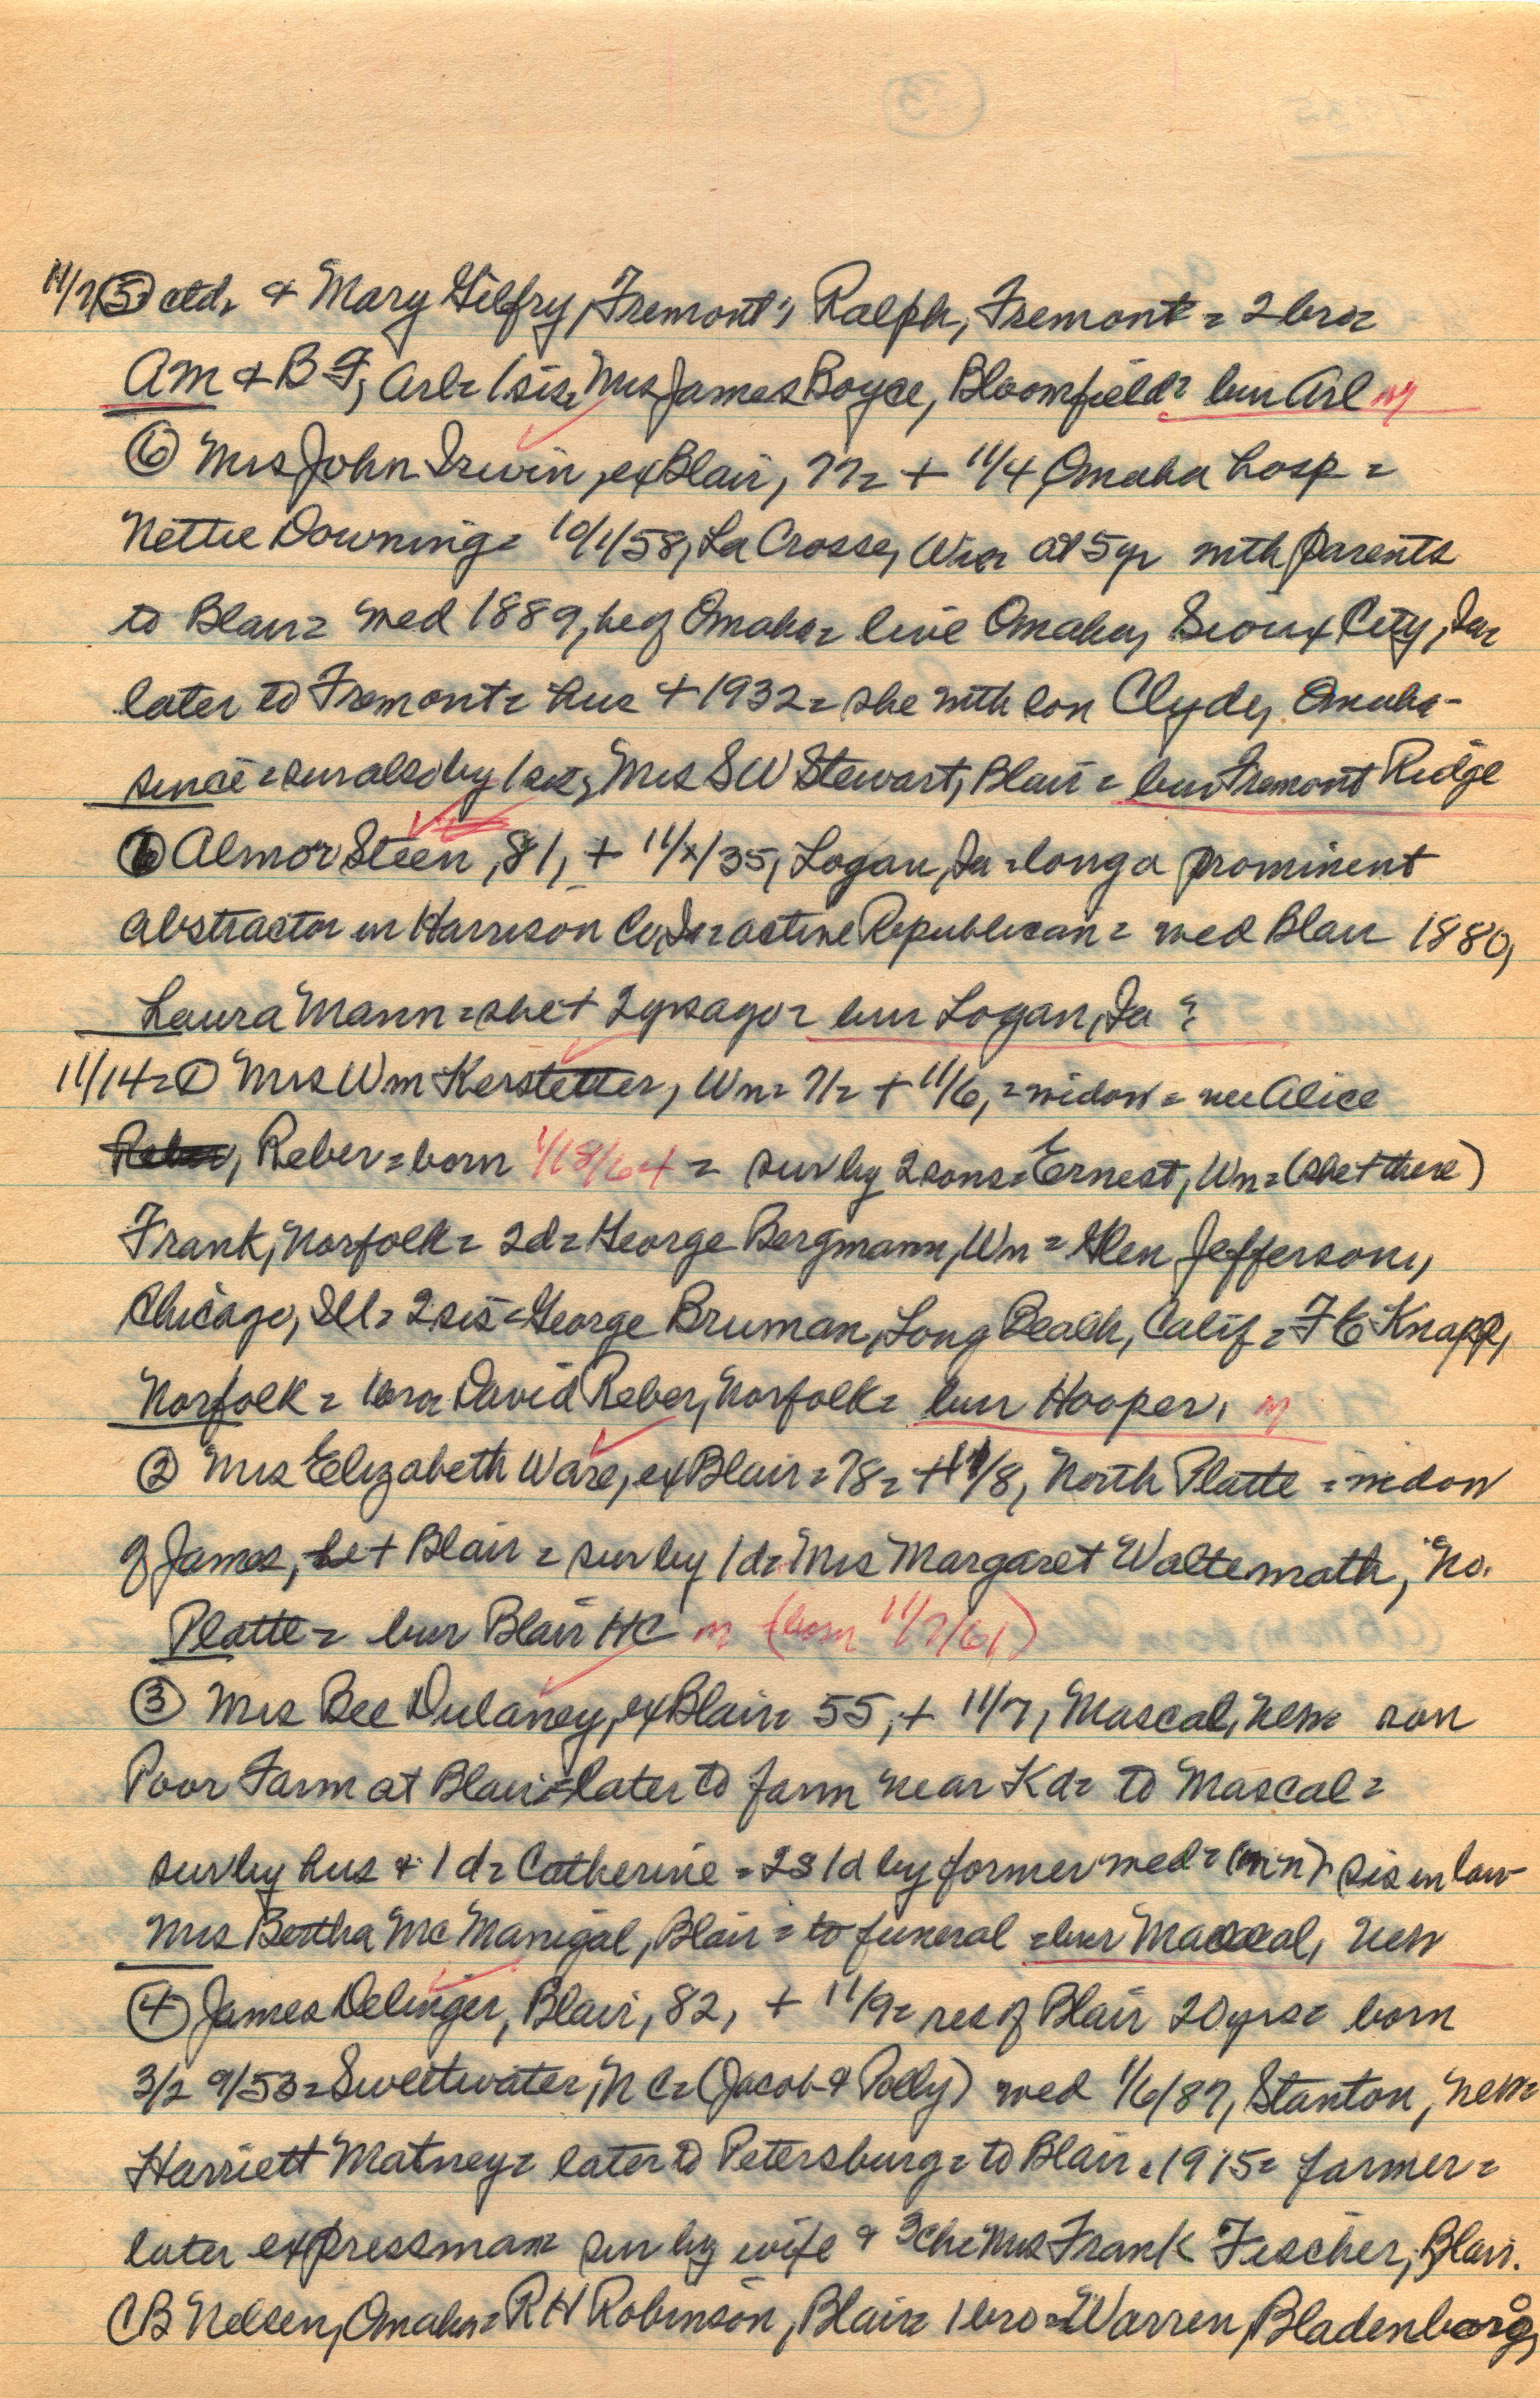 11/7 (5) ctd. & Mary Gilfry, Fremont; Ralph, Fremont = 2 bro =
AM & B F, Arl = 1 sis = Mrs James Boyce, Bloomfield = bur Arl m
(6) Mrs John Irwin, ex Blair, 77 = + 11/4 Omaha hosp =
Nettie Downing = 10/1/58, La Crosse, Wis = at 5 yr with parents
to Blair = med 1889, beg Omaha = live Omaha, Sioux City, Ia =
later to Fremont = hus + 1932 = she with son Clyde, Omaha -
since = sur also by 1 sis, Mrs SW Stewart, Blair = bur Fremont Ridge
(6) Almor Steen, 81, + 11/x/35, Logan, Ia = long a prominent
abstractor in Harrison Co, Ia = active Republican = med Blair 1880,
Laura Mann = she + 2 yrs ago = bur Logan, Ia ?
11/14 = (1) Mrs Wm Kerstetter, Wn = 71 = + 11/6, = widow = nee Alice
Reber, Reber = born 1/18/64 = sur by 2 sons = Ernest, Wn = (she + there)
Frank, Norfolk = 2 d = George Bergmann, Wn = Glen Jefferson,
Chicago, Ill = 2 sis = George Bruman, Long Beach, Calif = F E Knapp,
Norfolk = 1 bro = David Reber, Norfolk = bur Hooper, m
(2) Mrs Elizabeth Ware, ex Blair = 78 = + 11/8, North Platte = widow
of James, he + Blair = sur by 1 d = Mrs Margaret Waltemath, No.
Platte = bur Blair HC m (born 11/7/61)
(3) Mrs Bee Dulaney, ex Blair = 55, + 11/7, Mascal, Neb = ran
Poor Farm at Blair = later to farm near Kd = to Mascal =
sur by hus & 1 d = Catherine = 2 s 1 d by former med = (nin) = sis in law
Mrs Bertha McManigal, Blair = to funeral = bur Mascal, Neb
(4) James Delinger, Blair, 82, + 11/9 = res of Blair 20 yrs = born
3/29/53 = Sweetwater, NC = (Jacob & Polly) med 1/6/87, Stanton, Neb =
Harriett Matney = later to Petersburg = to Blair 1915 = farmer =
later expressman = sur by wife & 3 ch = Mrs Frank Fischer, Blair.
CB Nelsen, Omaha = RH Robinson, Blair = 1 bro = Warren, Bladenborg,